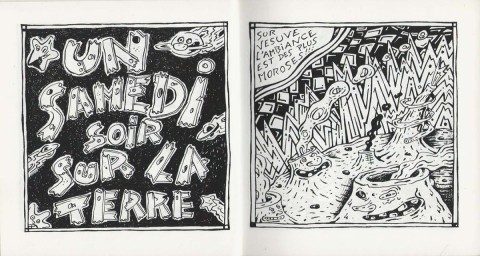 UN
SAMEDI
SOIR
SUR LA
TERRE
SUR
VESUVE
L'AMBIANCE
EST DES PLUS
MOROSES